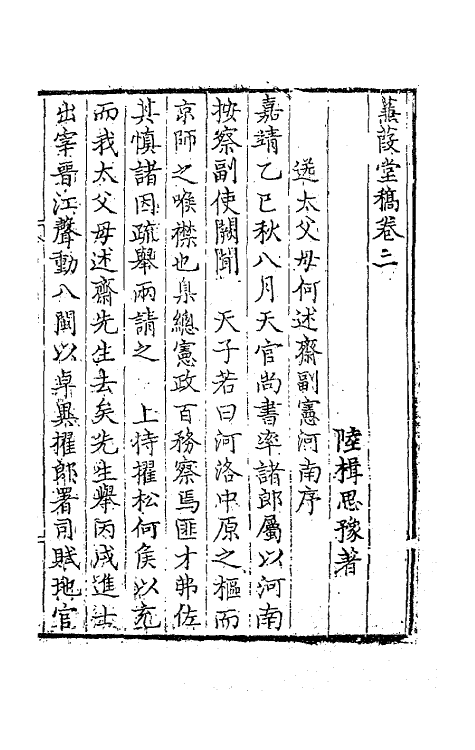 蒹葭堂稿卷三
陸楫思豫著
送太父母何述齋副憲河南序
嘉靖乙巳秋八月天官尚書率諸郎屬以河南
按察副使闕聞　天子若曰河洛中原之樞而
京師之喉襟也臬總憲政百務察焉匪才弗佐
其慎諸因疏舉兩請之　上特擢松何侯以充
而我太父母述齋先生去矣先生舉丙戌進士
出宰晋江聲動八閩以卓異擢郎署司賦地官